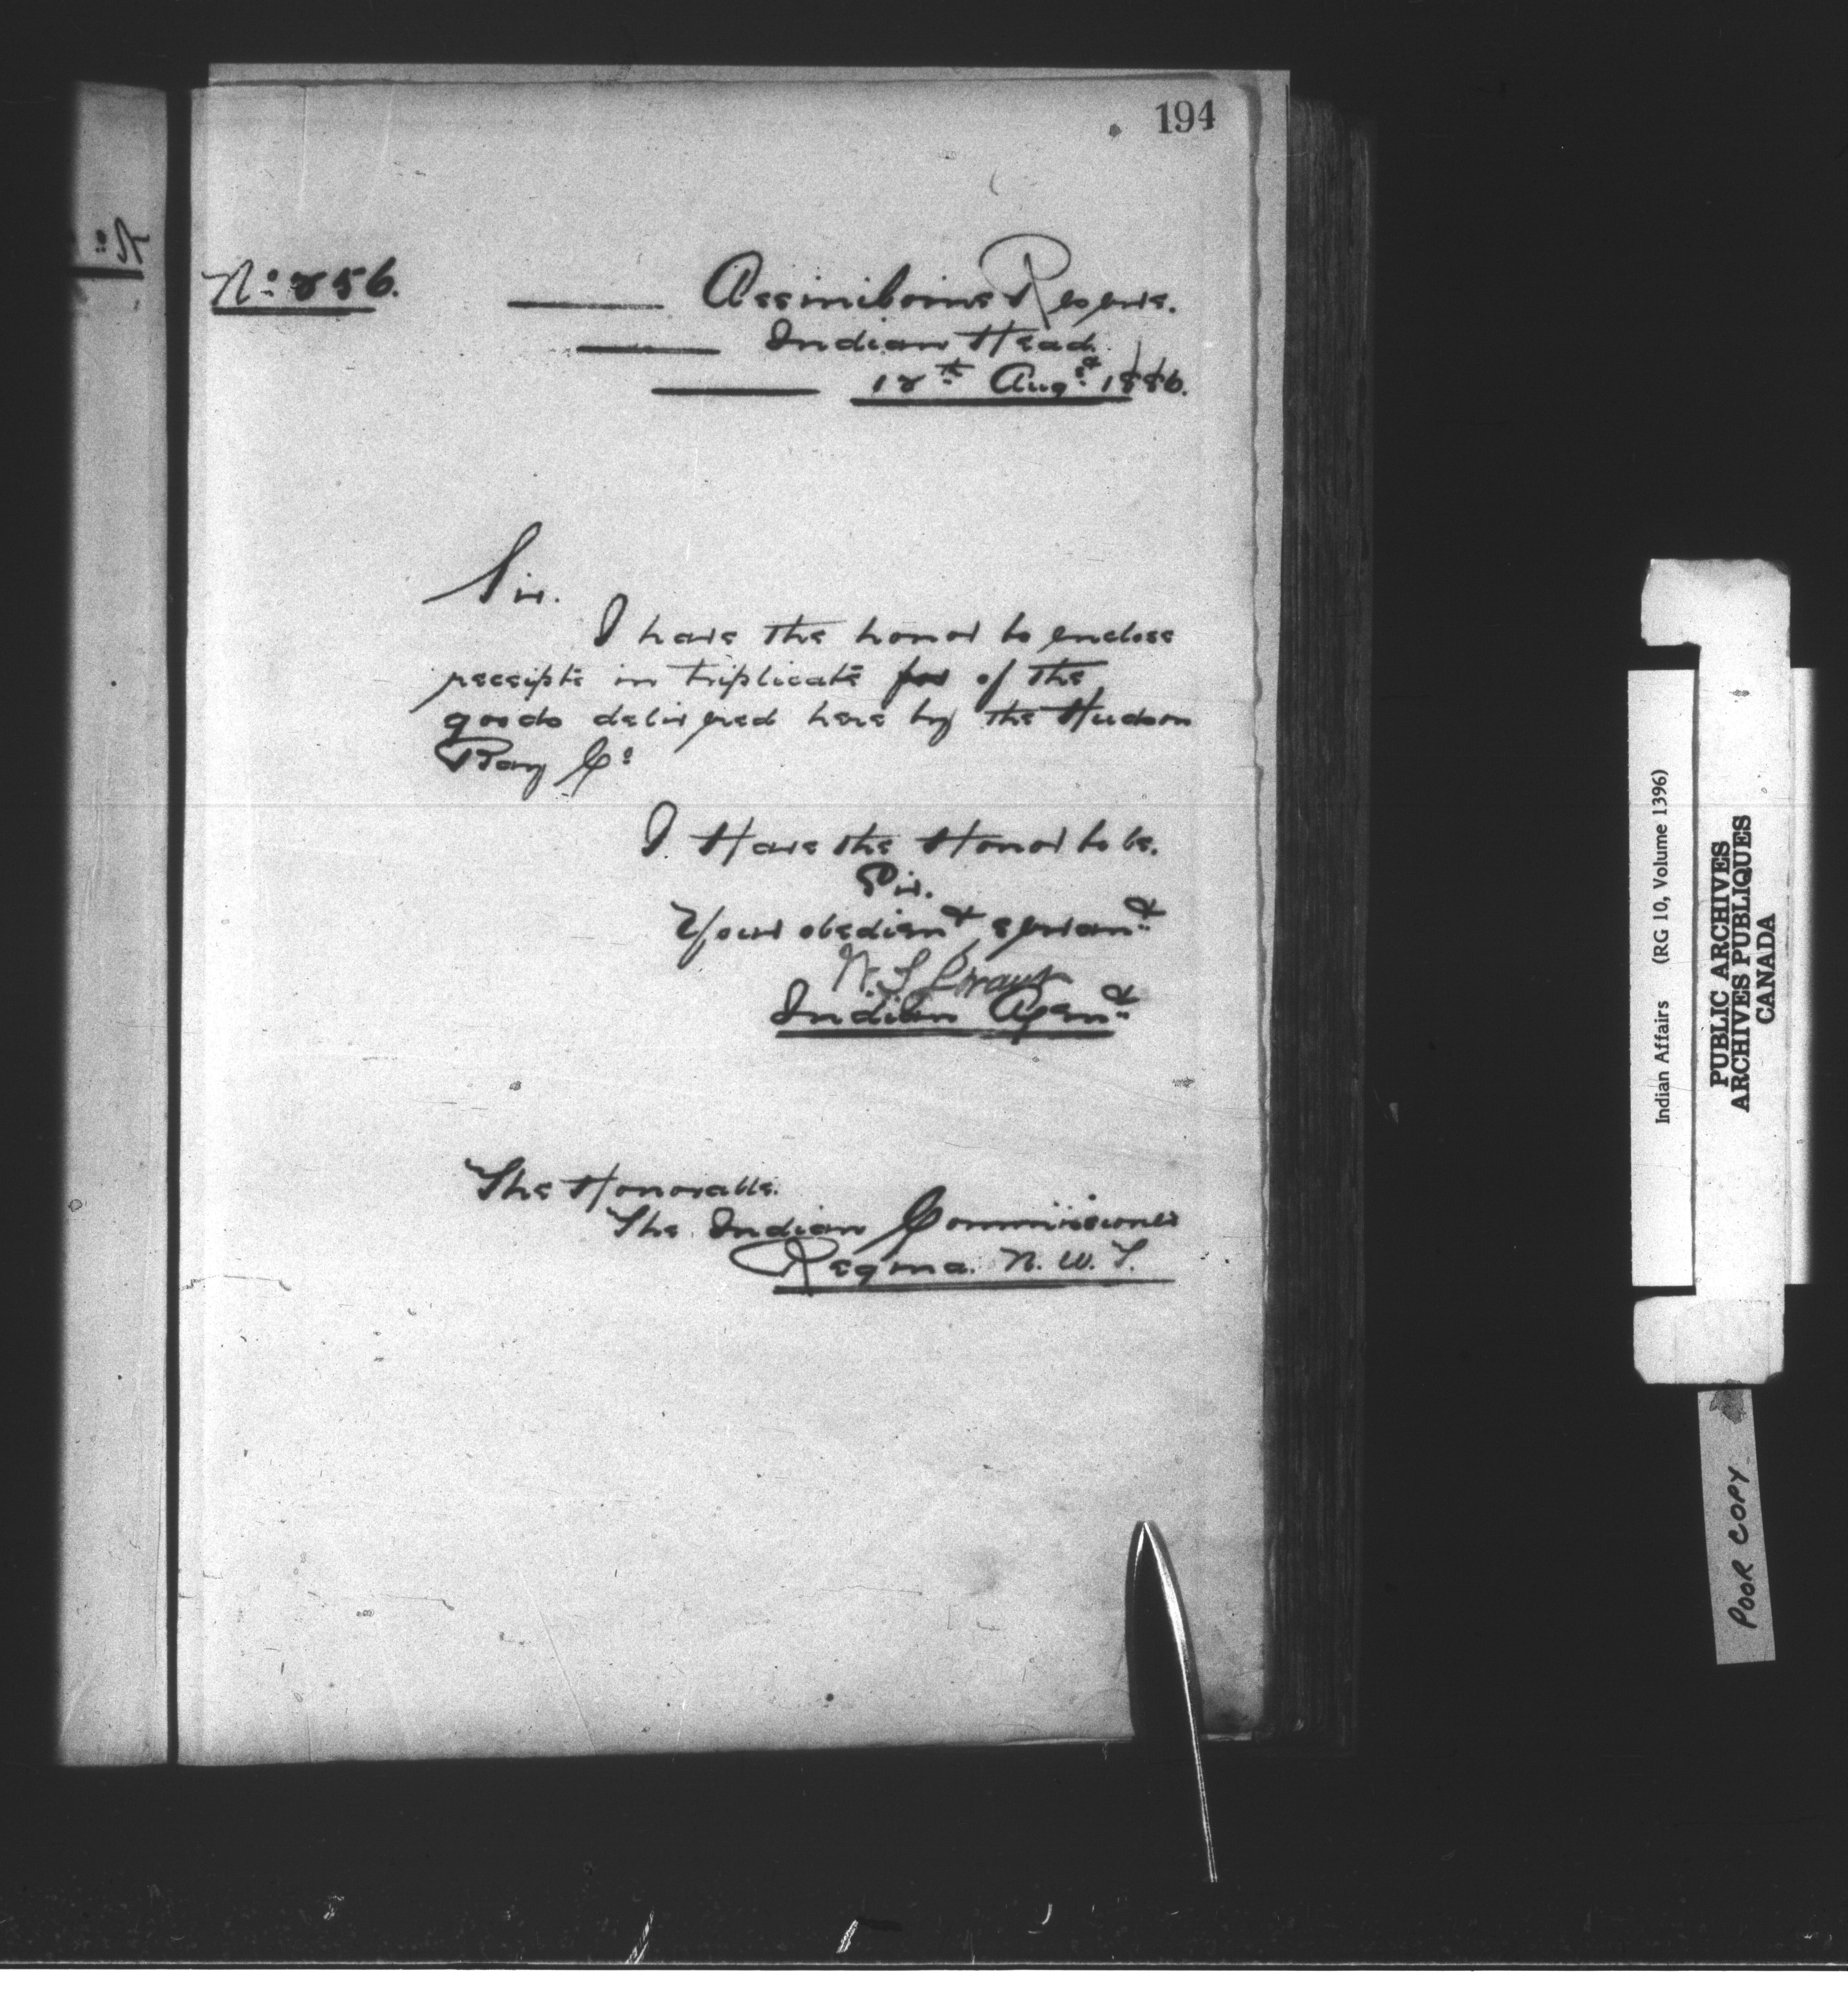 194
No: 256.
Assiniboine Reserve.
Indian Head
12th Augst 1886.
Sir.
I have the honor to enclose
receipts in triplicate for of the
goods delivered here by the Hudson
Bay Co
I Have the Honor to be.
Sir.
Your obedient servant
W. S. Grant
Indian Agent
The Honorable.
The Indian Commissioner
Regina. N. W. T.
Indian Affairs (RG 10, Volume 1396)
PUBLIC ARCHIVES
ARCHIVES PUBLIQUES
CANADA
POOR COPY